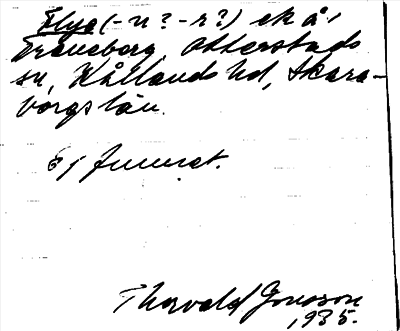 Flya (-n? -r?) ek å 1
Traneberg Otterstads
sn, Kållands hd, Skara-
borgs län.
Ej funnet.
Thorvald Jonsson
1935.